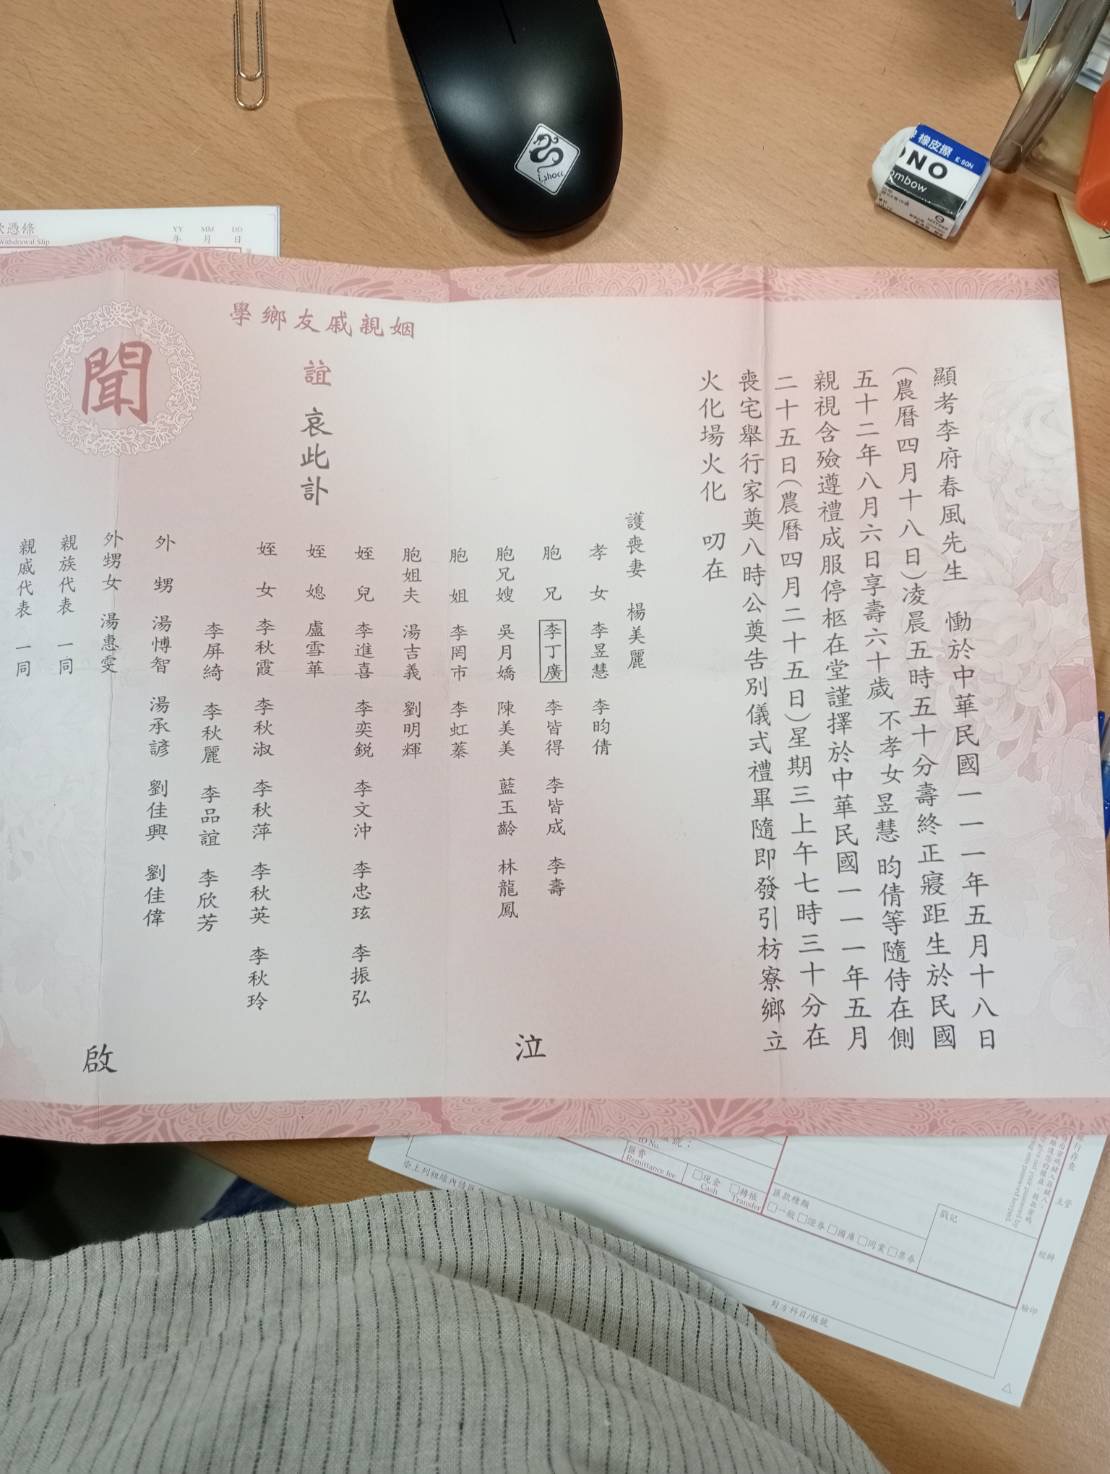 顯考李府春風先生　慟於中華民國一一一年五月十八日
(農曆四月十八日)凌晨五時五十分壽終正寢距生於民國
五十二年八月六日享壽六十歲 不孝女昱慧 昀倩等隨侍在側
親視含殮遵禮成服停柩在堂謹擇於中華民國一一一年五月
二十五日(農曆四月二十五日)星期三上午七時三十分在
喪宅舉行家奠八時公奠告別儀式禮畢隨即發引枋寮鄉立
火化場火化　叨在
護喪妻 楊美麗
孝女 李昱慧 李昀倩
胞兄 李丁廣 李皆得 李皆成 李壽
胞兄嫂 吳月嬌 陳美美 藍玉齡 林龍鳳
泣
胞姐 李罔市 李虹蓁
胞姐夫 湯吉義 劉明輝
姪兒 李進喜 李奕銳 李文沖 李忠玹 李振弘
姪媳 盧雪華
姪女 李秋霞 李秋淑 李秋萍 李秋英 李秋玲
李屏綺 李秋麗 李品誼 李欣芳
外甥 湯愽智 湯承諺 劉佳興 劉佳偉
外甥女 湯惠雯
親族代表 一同
親戚代表 一同
啟
學鄉友戚親姻
誼 哀此訃
聞
i.shock
橡皮擦
E-50N
ONO
mbow
憑條
Withdrawal Slip
YY MM DD
年 月 日
ID No.
匯費
Remittance fee
□現金 □轉帳
Cash Transfer
匯款種類
□一般 □證券 □國庫 □同業 □票券
戳記
主管
經辦
驗印
對方科目/帳號